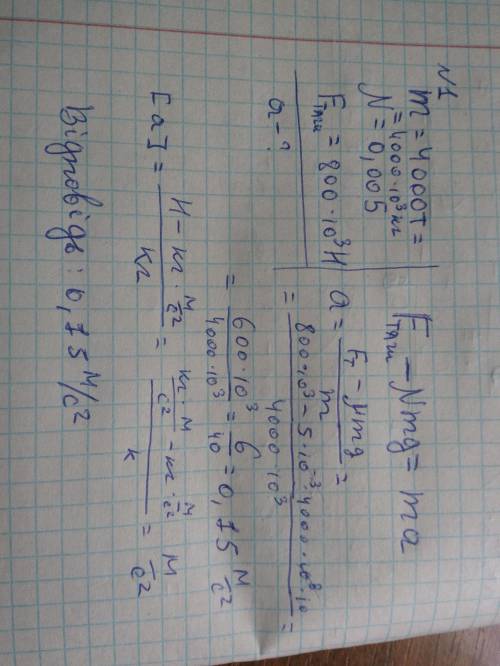 N1
m = 4000т =
= 4000·10³ кг
N = 0,005
Fтяги = 800·10³ Н
a - ?
Fтяги - Nmg = ma
a = (Fт - μmg) / m =
= (800·10³ - 5·10⁻³·4000·10³·10) / (4000·10³) =
= (600·10³) / (4000·10³) = 6/40 = 0,15 м/с²
[a] = (Н - кг · м/с²) / кг = (кг · м/с² - кг · м/с²) / к = м/с²
Відповідь: 0,15 м/с²